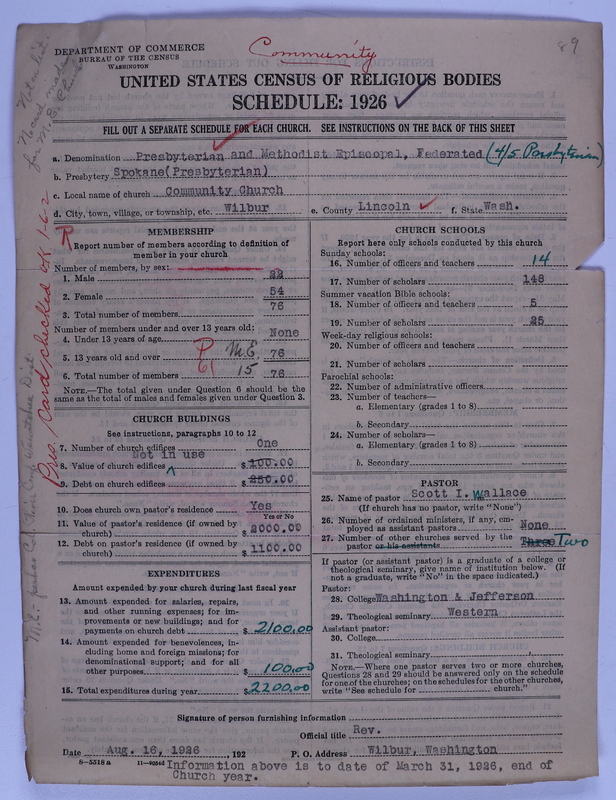 89
Community
DEPARTMENT OF COMMERCE
BUREAU OF THE CENSUS
WASHINGTON
UNITED STATES CENSUS OF RELIGIOUS BODIES
SCHEDULE: 1926 ✓
FILL OUT A SEPARATE SCHEDULE FOR EACH CHURCH. SEE INSTRUCTIONS ON THE BACK OF THIS SHEET
a. Denomination Presbyterian and Methodist Episcopal, Federated (4/5 Presbyterian)
b. Presbytery Spokane(Presbyterian)
c. Local name of church Community Church
d. City, town, village, or township, etc. Wilbur e. County Lincoln f. State Wash.
MEMBERSHIP
Report number of members according to definition of
member in your church
Number of members, by sex:
1. Male 22
2. Female 54
3. Total number of members 76
Number of members under and over 13 years old:
4. Under 13 years of age None
5. 13 years old and over P M.E. 76
6. Total number of members 61 15 76
NOTE.—The total given under Question 6 should be
same as the total of males and females given under Question 3.
CHURCH BUILDINGS
See instructions, paragraphs 10 to 12
7. Number of church edifices One
Not in use
8. Value of church edifices $ 100.00
9. Debt on church edifices $ 250.00
10. Does church own pastor's residence Yes
Yes or No
11. Value of pastor's residence (if owned by
church) $ 2000.00
12. Debt on pastor's residence (if owned by
church) $ 1100.00
EXPENDITURES
Amount expended by your church during last fiscal year
13. Amount expended for salaries, repairs,
and other running expenses; for im-
provements or new buildings; and for
payments on church debt $ 2100.00
14. Amount expended for benevolences, in-
cluding home and foreign missions; for
denominational support; and for all
other purposes $ 100.00
15. Total expenditures during year $ 2200.00
CHURCH SCHOOLS
Report here only schools conducted by this church
Sunday schools:
16. Number of officers and teachers 14
17. Number of scholars 148
Summer vacation Bible schools:
18. Number of officers and teachers 5
19. Number of scholars 25
Week-day religious schools:
20. Number of officers and teachers
21. Number of scholars
Parochial schools:
22. Number of administrative officers
23. Number of teachers—
a. Elementary (grades 1 to 8)
b. Secondary
24. Number of scholars—
a. Elementary (grades 1 to 8)
b. Secondary
PASTOR
25. Name of pastor Scott I. Wallace
(If church has no pastor, write "None")
26. Number of ordained ministers, if any, em-
ployed as assistant pastors None
27. Number of other churches served by the
pastor or his assistants Three Two
If pastor (or assistant pastor) is a graduate of a college or
theological seminary, give name of institution below. (If
not a graduate, write "No" in the space indicated.)
Pastor:
28. College Washington & Jefferson
29. Theological seminary Western
Assistant pastor:
30. College
31. Theological seminary
NOTE.—Where one pastor serves two or more churches,
Questions 28 and 29 should be answered only on the schedule
for one of the churches; on the schedules for the other churches,
write "See schedule for church."
Signature of person furnishing information
Official title Rev.
Date Aug. 16, 1926 , 192 P. O. Address Wilbur, Washington
8-5518a
Information above is to date of March 31, 1926, end of
Church year.
Pres. Card checked OK 1-6-2